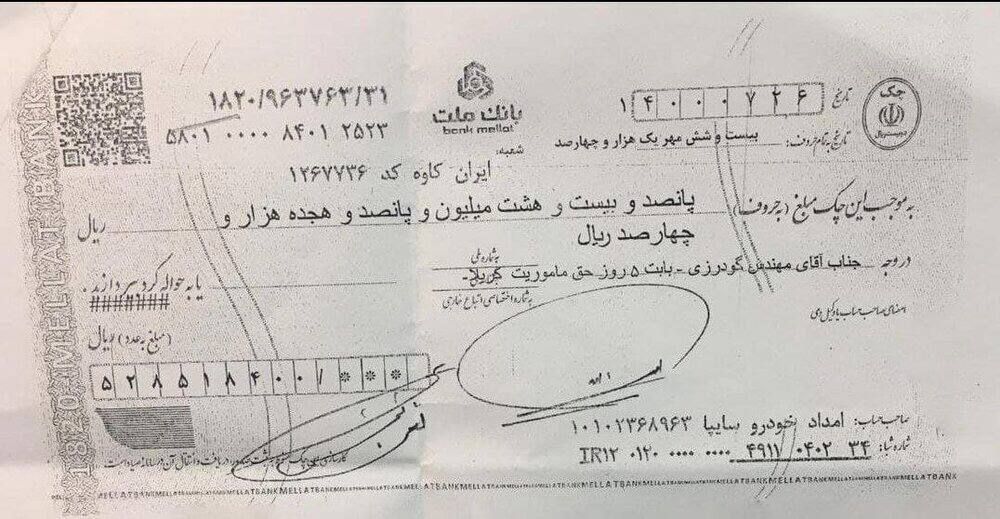 چک
تاریخ ۱۴۰۰۰۷۲۶
تاریخ به تمام حروف: بیست و شش مهر یک هزار و چهارصد
بانک ملت
bank mellat
۱۸۲۰/۹۶۳۷۶۳/۳۱
۵۸۰۱ ۰۰۰۰ ۸۴۰۱ ۲۵۲۳
شعبه:
ایران کاوه کد ۱۲۶۷۷۳۶
به موجب این چک مبلغ (به حروف) پانصد و بیست و هشت میلیون و پانصد و هجده هزار و ریال
چهارصد ریال
در وجه جناب آقای مهندس گودرزی - بابت ۵ روز حق ماموریت کربلا - یا به حواله کرد بپردازند.
به شماره ملی
به شماره اختصاصی اتباع خارجی
########
امضای صاحب حساب یا وکیل وی
(مبلغ به عدد) ریال
۵۲۸۵۱۸۴۰۰/***
صاحب حساب: امداد خودرو سایپا ۱۰۱۰۲۳۶۸۹۶۳
شماره شبا: IR۱۲ ۰۱۲۰ ۰۰۰۰ ۰۰۰۰ ۴۹۱۱ ۰۴۰۲ ۳۴
1820 MELLAT BANK
MELLATBANKMELLATBANKMELLATBANKMELLATBANKMELLATBANKMELLATBANKMELLATBANK